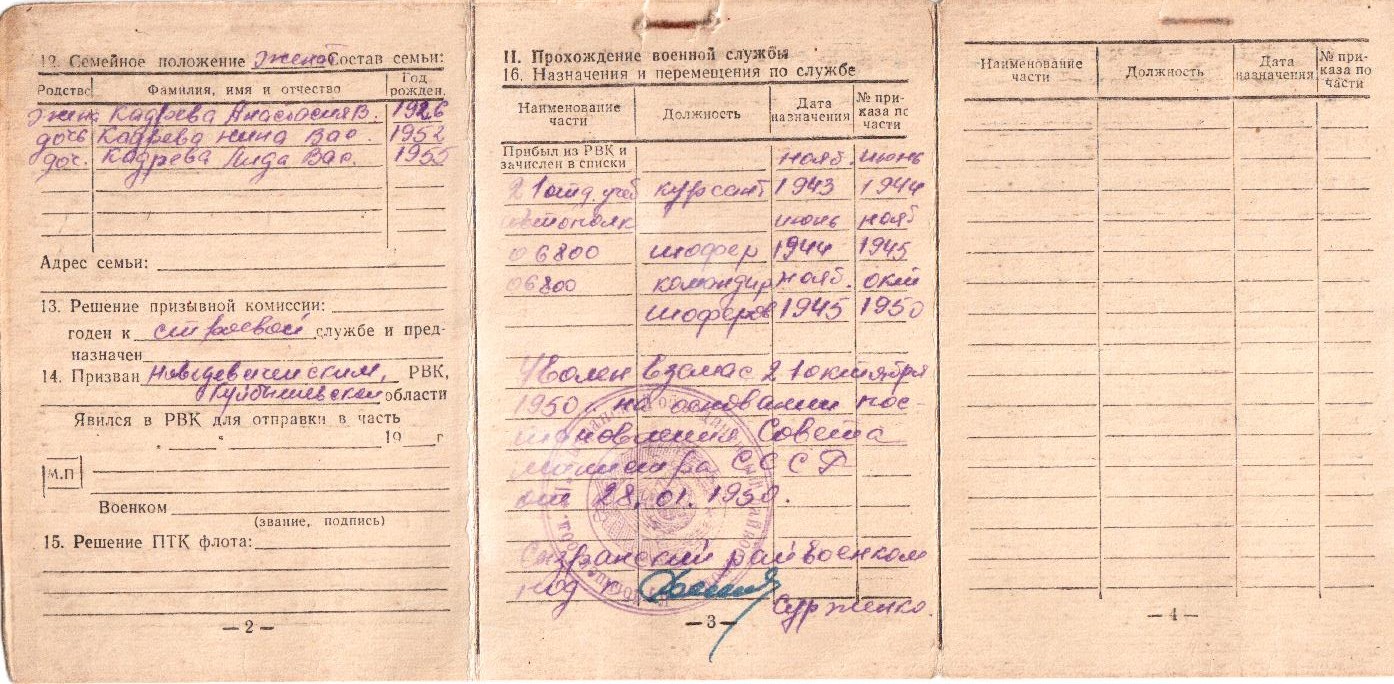 12. Семейное положение жена Состав семьи:
Родство Фамилия, имя и отчество Год рожден.
жена Кадрева Анастасия В. 1926
дочь Кадрева Нина Вас. 1952
доч. Кадрева Лида Вас. 1955
Адрес семьи:
13. Решение призывной комиссии:
годен к строевой службе и пред-
назначен
14. Призван Новодевиченским, РВК,
Куйбышевской области
Явился в РВК для отправки в часть
" " 19 г
М.П
Военком
(звание, подпись)
15. Решение ПТК флота:
— 2 —
II. Прохождение военной службы
16. Назначения и перемещения по службе
Наименование части Должность Дата назначения № приказа по части
Прибыл из РВК и
зачислен в списки нояб. июнь
21 учеб курсант 1943 1944
автополк июнь нояб
06800 шофер 1944 1945
06800 командир нояб. окт
шоферов 1945 1950
Уволен в запас 21 октября
1950 на основании пос-
тановления Совета
министров СССР
от 28.01.1950.
Сызранский райвоенком
Сурженко.
— 3 —
Наименование части Должность Дата назначения № приказа по части
— 4 —